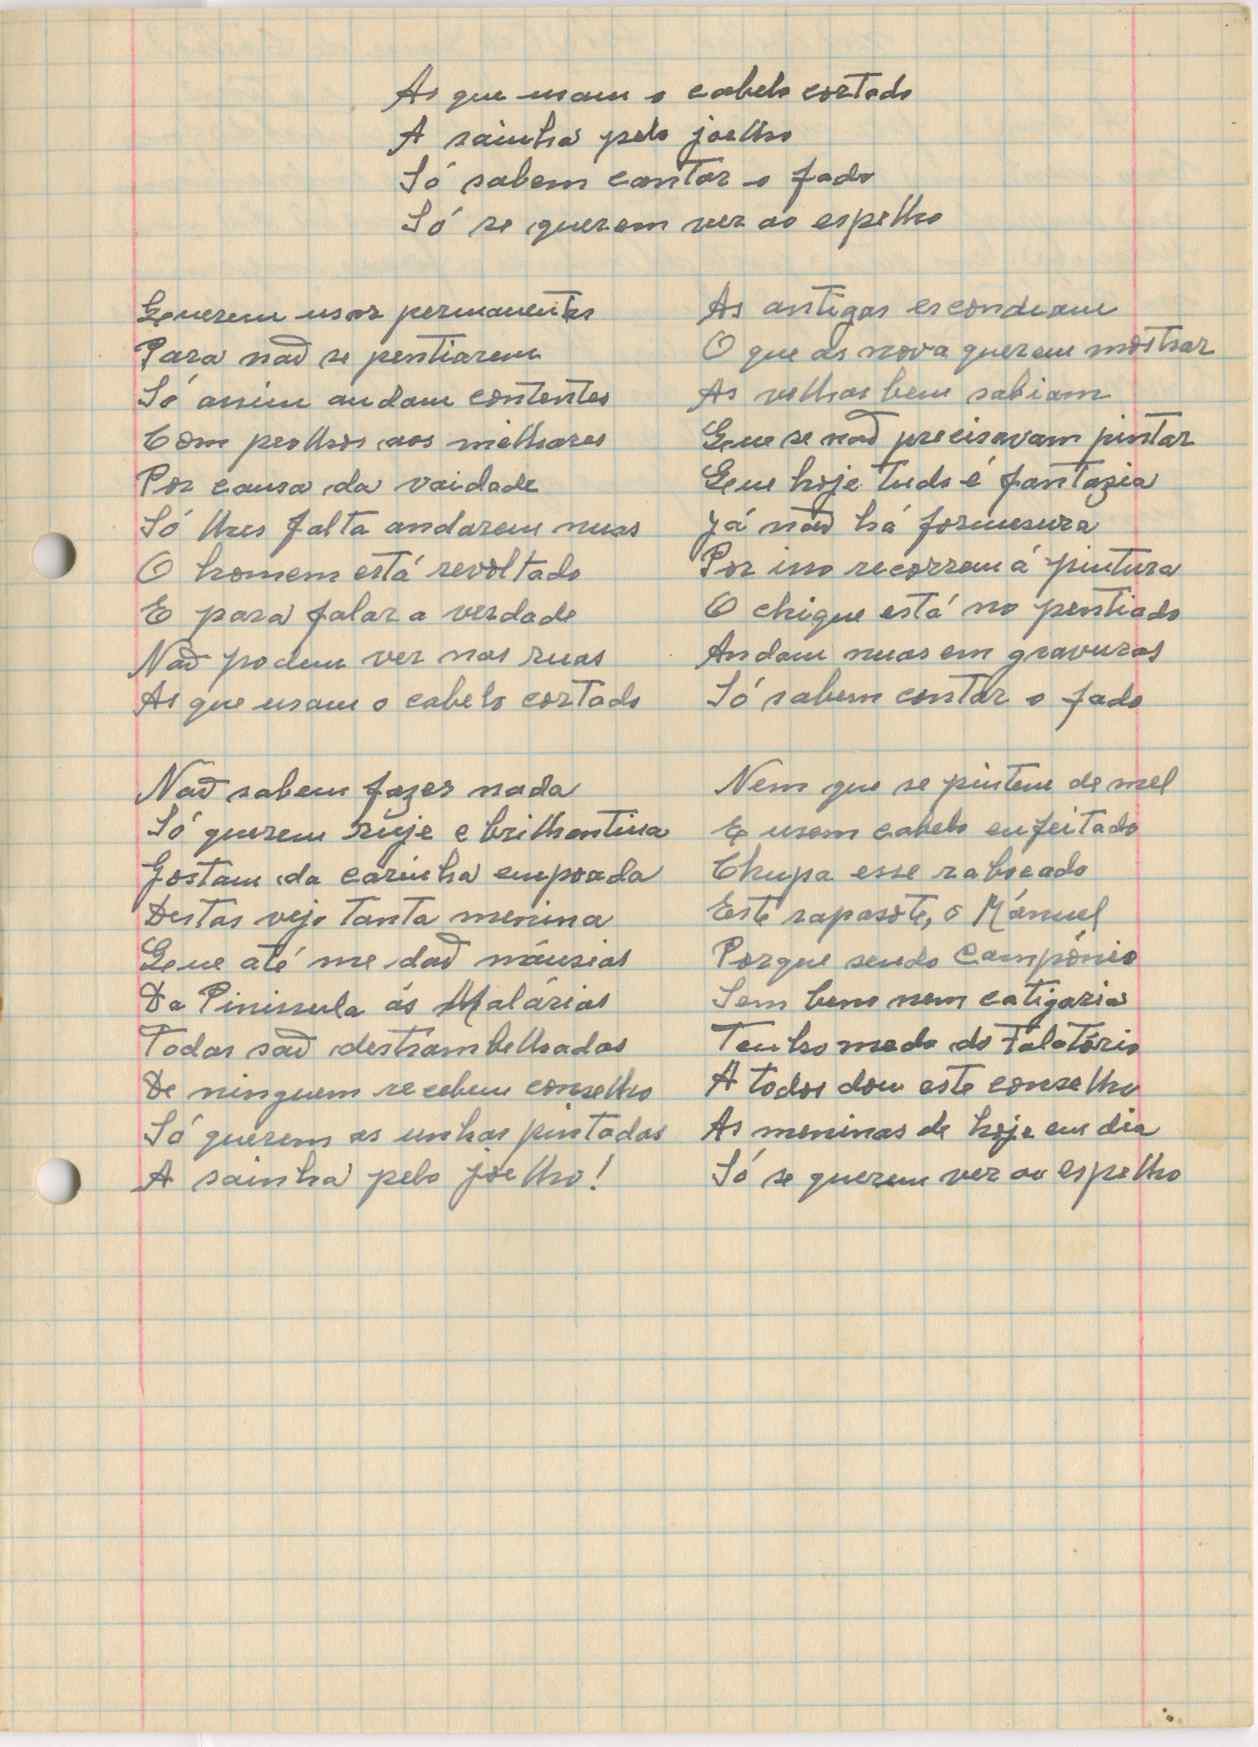 As que usam o cabelo cortado
A sainha pelo joelho
Só sabem cantar o fado
Só se querem ver ao espelho
Querem usar permanentes
Para não se pentiarem
Só assim andam contentes
Com peolhos aos milhares
Por causa da vaidade
Só lhes falta andarem nuas
O homem está revoltado
E para falar a verdade
Não podem ver nas ruas
As que usam o cabelo cortado
As antigas escondeam
O que as nova querem mostrar
As velhas bem sabiam
Que se não precisavam pintar
Que hoje tudo é fantazia
Já não há formusura
Por isso recorrem á pintura
O chique está no pentiado
Andam nuas em gravuras
Só sabem contar o fado
Não sabem fazer nada
Só querem ruje e brilhantina
Gostam da carinha empoada
Destas vejo tanta menina
Que até me dão náusias
Da Pininsula ás Malárias
Todas são destrambelhadas
De ninguem recebem conselho
Só querem as unhas pintadas
A sainha pelo joelho!
Nem que se pintem de mel
E usem cabelo enfeitado
Chupa esse rabocado
Este rapasote, o Mánuel
Porque sendo Campónio
Sem bens nem catigaria
Tenho medo do falatório
A todos dou este conselho
As meninas de hoje em dia
Só se querem ver ao espelho